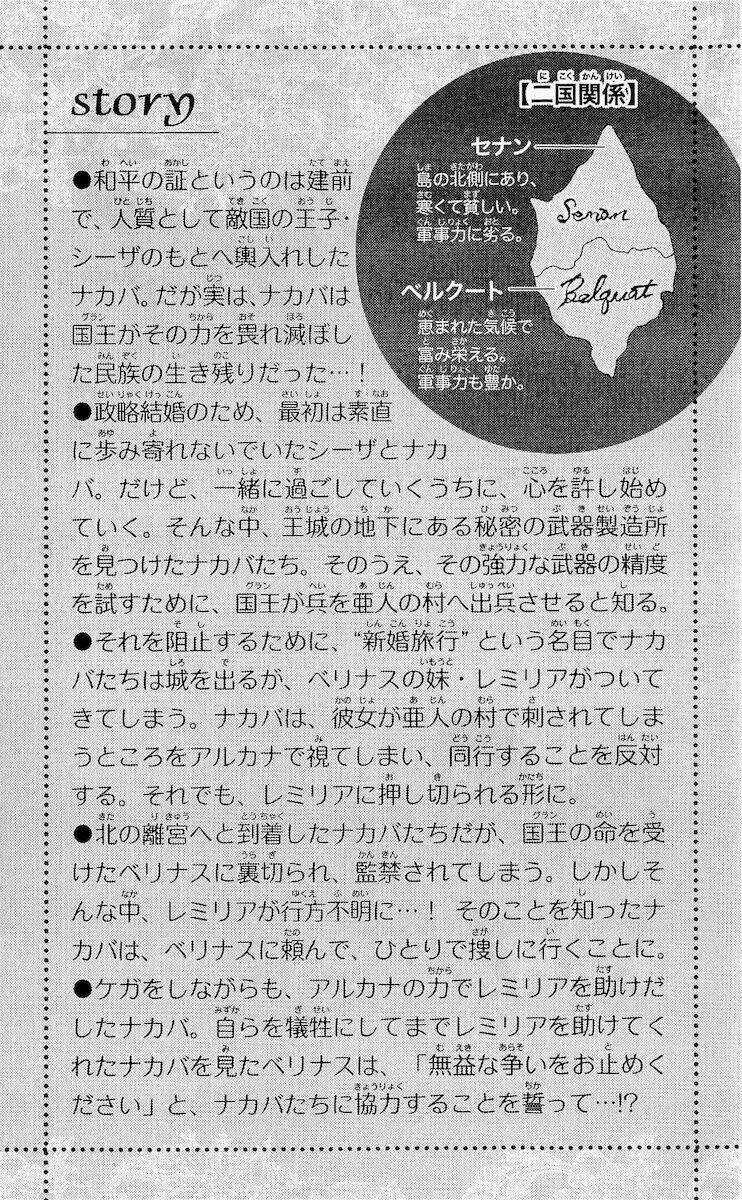 story
●和平の証というのは建前
で、人質として敵国の王子・
シーザのもとへ輿入れした
ナカバ。だが実は、ナカバは
国王がその力を畏れ滅ぼし
た民族の生き残りだった…！
●政略結婚のため、最初は素直
に歩み寄れないでいたシーザとナカ
バ。だけど、一緒に過ごしていくうちに、心を許し始め
ていく。そんな中、王城の地下にある秘密の武器製造所
を見つけたナカバたち。そのうえ、その強力な武器の精度
を試すために、国王が兵を亜人の村へ出兵させると知る。
●それを阻止するために、“新婚旅行”という名目でナカ
バたちは城を出るが、ベリナスの妹・レミリアがついて
きてしまう。ナカバは、彼女が亜人の村で刺されてしま
うところをアルカナで視てしまい、同行することを反対
する。それでも、レミリアに押し切られる形に。
●北の離宮へと到着したナカバたちだが、国王の命を受
けたベリナスに裏切られ、監禁されてしまう。しかしそ
んな中、レミリアが行方不明に…！ そのことを知ったナ
カバは、ベリナスに頼んで、ひとりで捜しに行くことに。
●ケガをしながらも、アルカナの力でレミリアを助けだ
したナカバ。自らを犠牲にしてまでレミリアを助けてく
れたナカバを見たベリナスは、「無益な争いをお止めく
ださい」と、ナカバたちに協力することを誓って…!?
【二国関係】
セナン
島の北側にあり、
寒くて貧しい。
軍事力に劣る。
ベルクート
恵まれた気候で
富み栄える。
軍事力も豊か。
Senan
Belquat